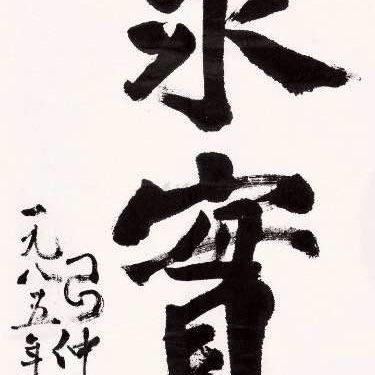 求實
习仲
一九八五年